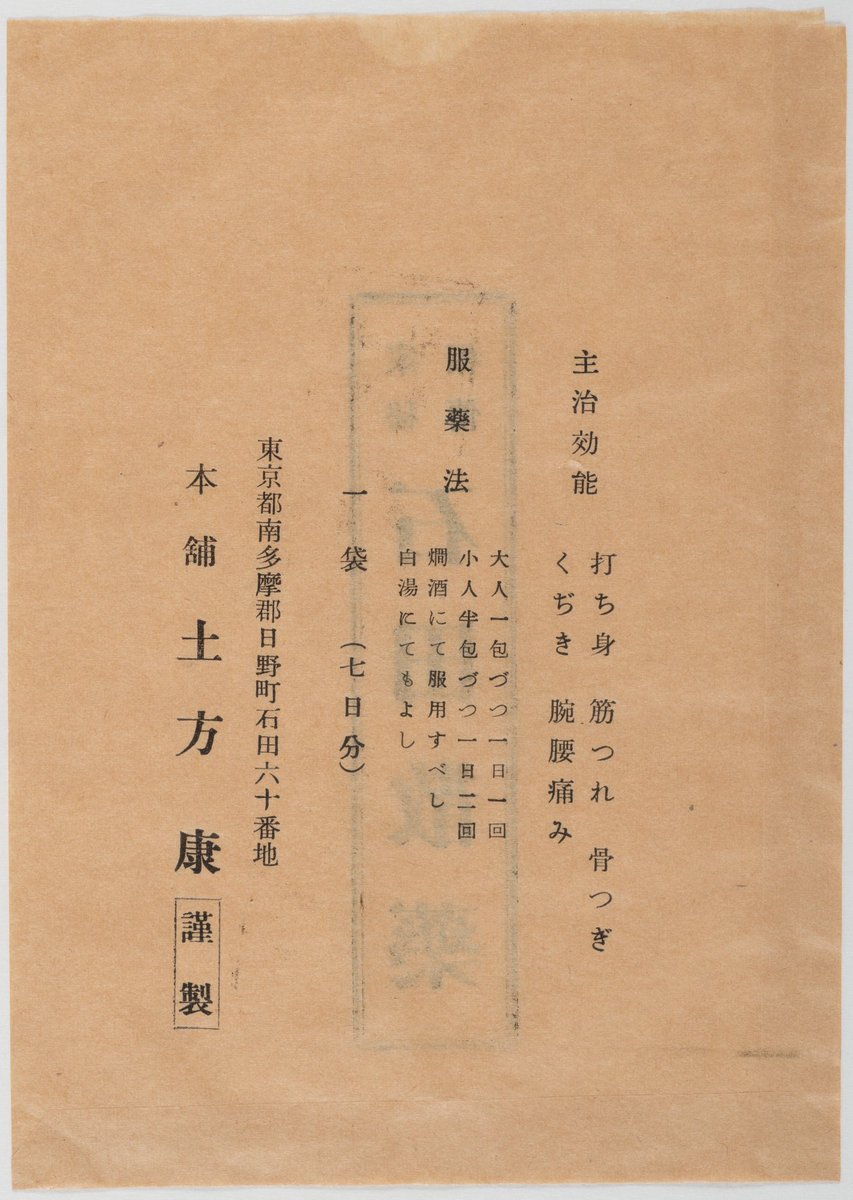 主治効能
打ち身 筋つれ 骨つぎ
くぢき 腕腰痛み
服薬法
大人一包づつ一日一回
小人半包づつ一日二回
燗酒にて服用すべし
白湯にてもよし
一袋(七日分)
東京都南多摩郡日野町石田六十番地
本舗 土方康 謹製